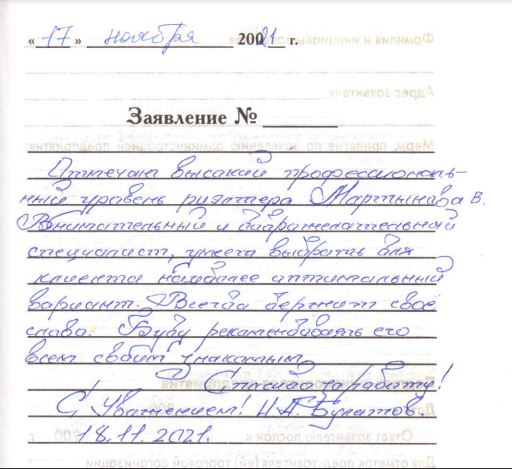 «17» ноября 20021 г.
Заявление №
Отмечаю высокий профессиональ-
ный уровень риэлтера Мартынова В.
Внимательный и доброжелательный
специалист, умеет выбрать для
клиента наиболее оптимальный
вариант. Всегда держит своё
слово. Буду рекомендовать его
всем своим знакомым.
Спасибо за работу!
С Уважением! Н.А. Булатов.
18.11.2021.